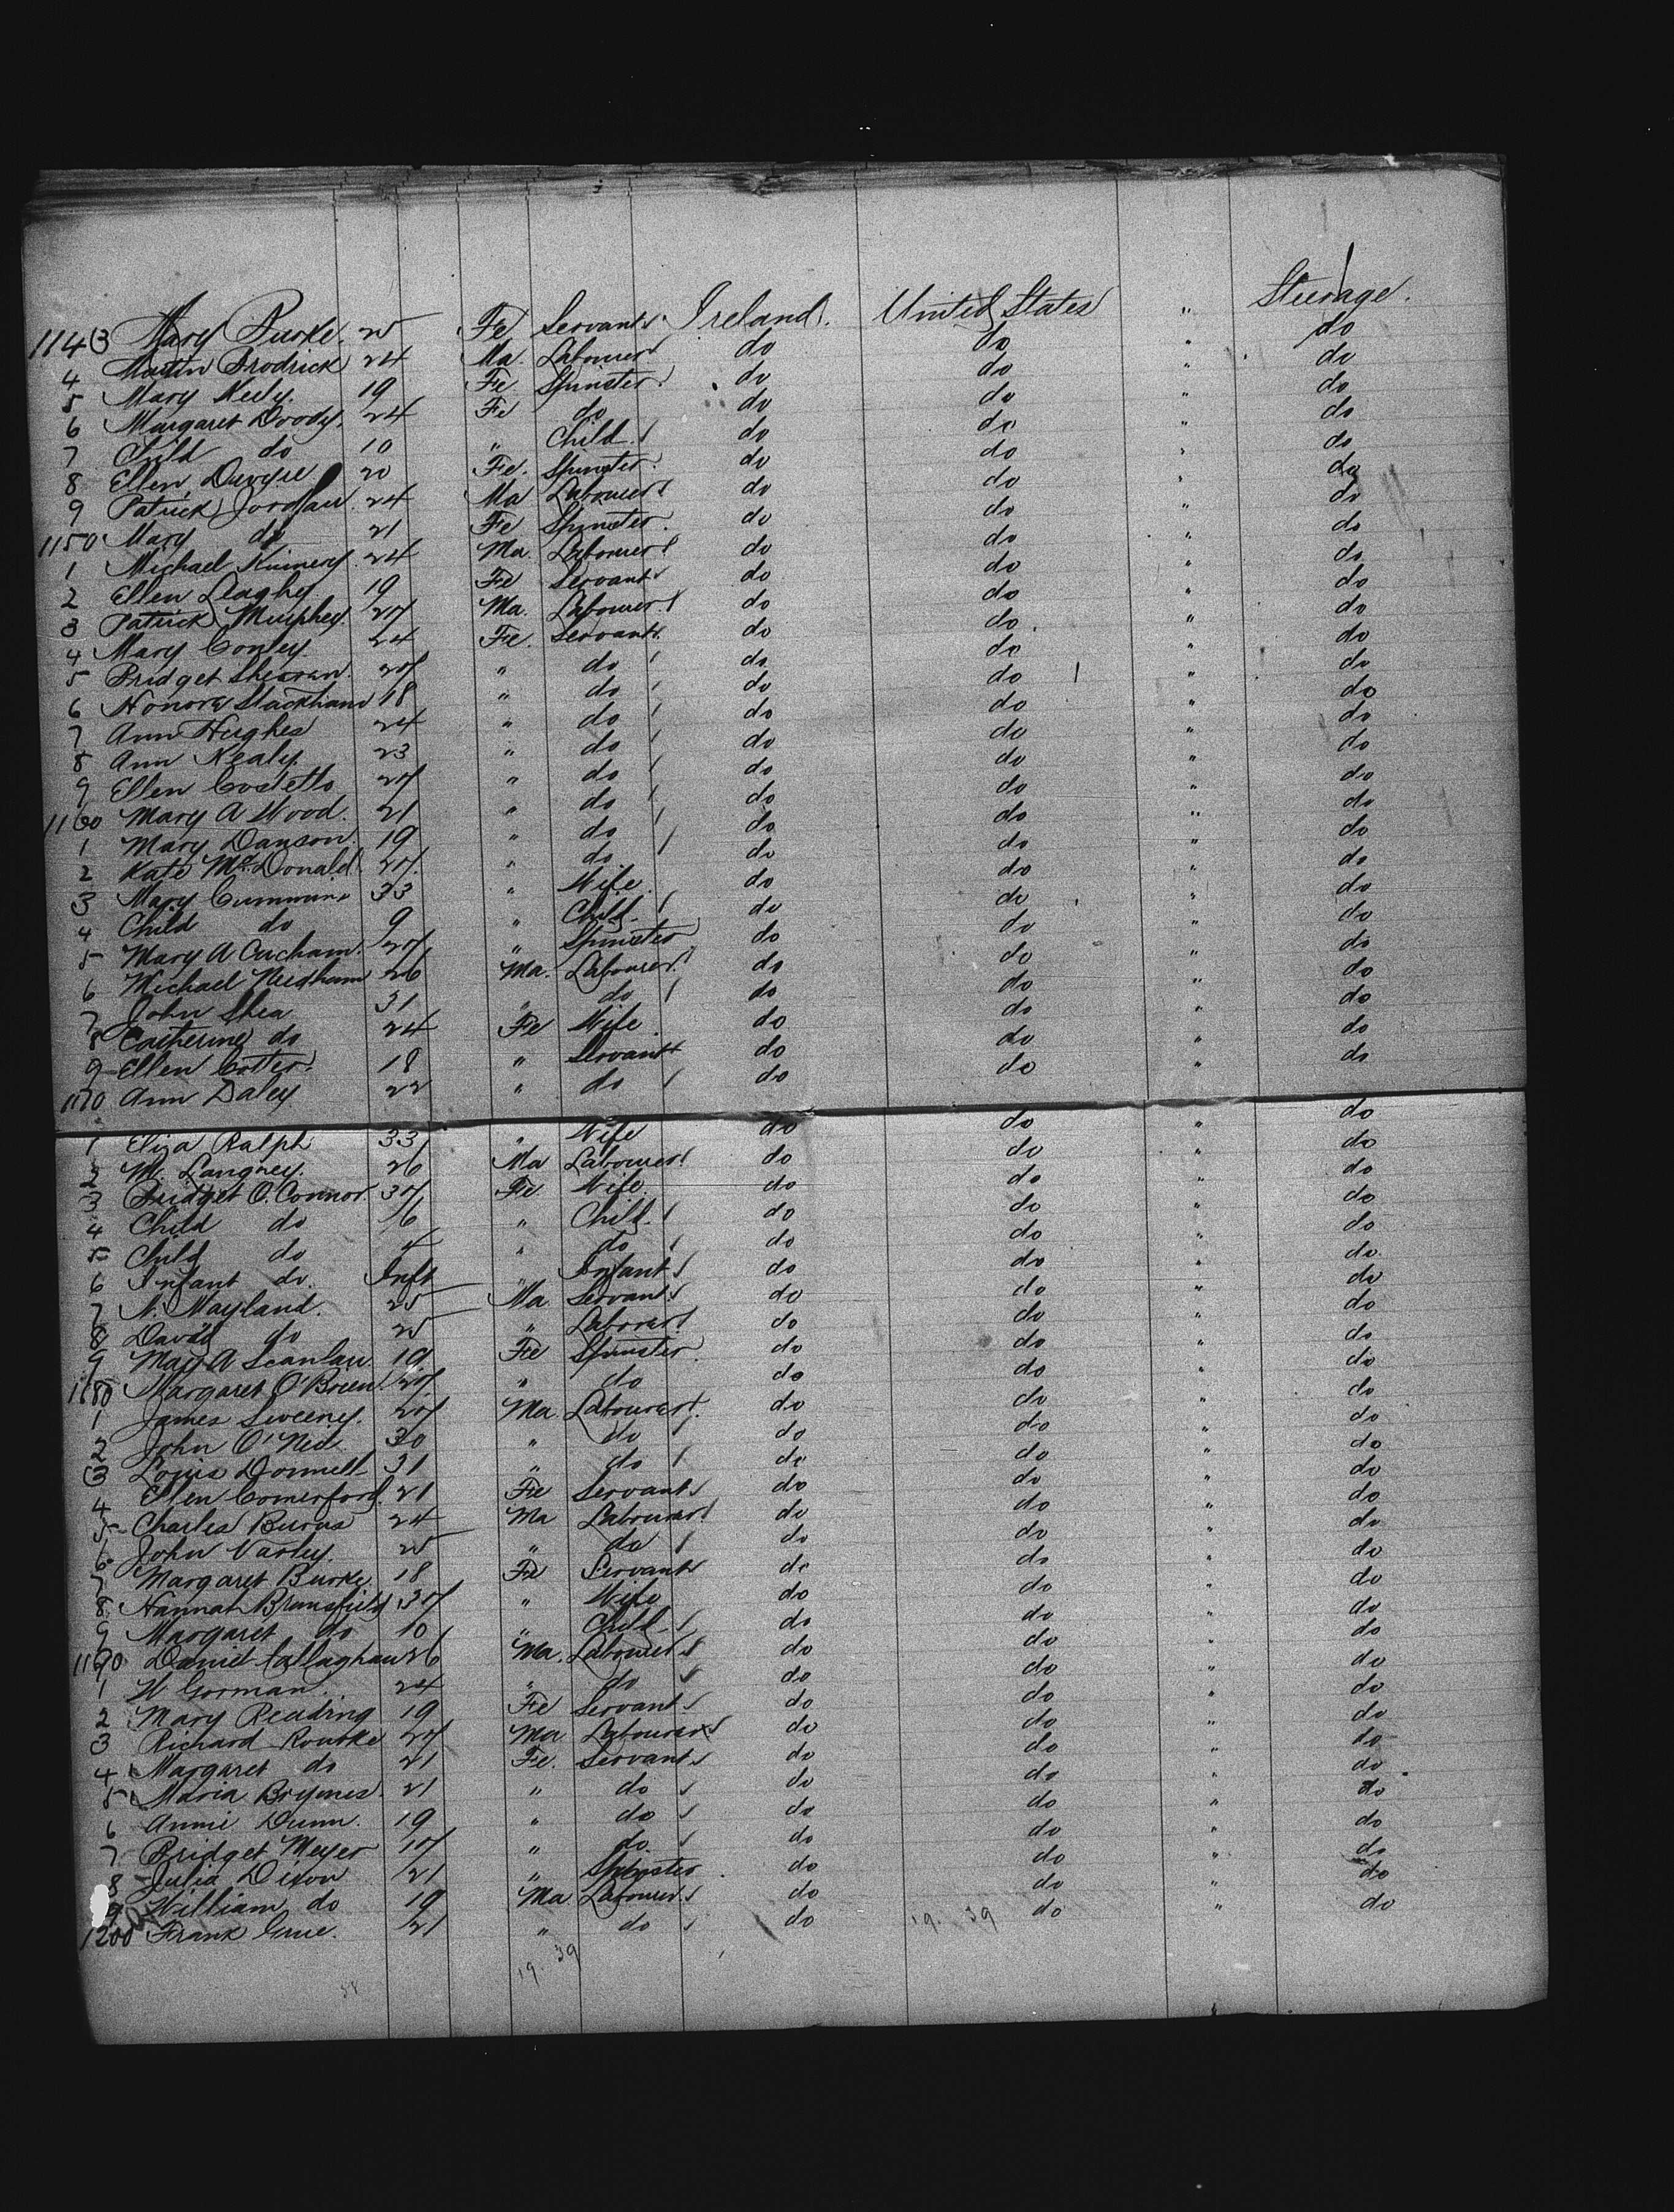 1143 Mary Burke. 25 Fe Servant Ireland. United States " Steerage.
4 Martin Brodrick 24 Ma. Labourer do do " do
5 Mary Keely. 19 Fe Spinster. do do " do
6 Margaret Doody. 24 Fe do do do " do
7 Child do 10 " Child do do " do
8 Ellen 20 Fe. Spinster. do do " do
9 Patrick Jordan. 24 Ma Labourer do do " do
1150 Mary do 21 Fe Spinster. do do " do
1 Michael 24 Ma. Labourer do do " do
2 Ellen 19 Fe Servant do do " do
3 Patrick Murphey. 20 Ma. Labourer. do do " do
4 Mary Conley. 24 Fe. Servant do do " do
5 Bridget 20 " do do do " do
6 Honora 18 " do do do " do
7 Ann Hughes 24 " do do do " do
8 Ann Kealy. 23 " do do do " do
9 Ellen Costello 20 " do do do " do
1160 Mary A Wood. 21 " do do do " do
1 Mary Danson. 19 " do do do " do
2 Kate McDonald 20. " do do do " do
3 Mary Cummins 33 " Wife. do do " do
4 Child do 9 " Child do do " do
5 Mary A 20 " Spinster do do " do
6 Michael Needham 26 Ma. Labourer. do do " do
7 John Shea 31 " do do do " do
8 Catherine do 24 Fe Wife. do do " do
9 Ellen Cotter. 18 " Servant do do " do
1170 Ann Daley 22 " do do do " do
1 Eliza Ralph 33 " Wife do do " do
2 M. Langney. 26 Ma Labourer do do " do
3 Bridget O.Connor. 30 Fe Wife. do do " do
4 Child do 6 " Child do do " do
5 Child do 4 " do do do " do
6 Infant do. Inft " Infant do do " do
7 N. Mayland. 25 Ma Servant do do " do
8 David do 25 " Labourer do do " do
9 May A Scanlan. 19 Fe Spinster. do do " do
1180 Margaret O'Brien. 20. " do do do " do
1 James Sweeney. 20 Ma. Labourer do do " do
2 John O'Neil 30 " do do do " do
3 Louis Donnell 31 " do do do " do
4 Ellen Comerford. 21 Fe Servant do do " do
5 Charles Burns 24 Ma Labourer do do " do
6 John Varley. 25 " do do do " do
7 Margaret Burke 18 Fe Servant do do " do
8 Hannah Brunsfield 30 " Wife do do " do
9 Margaret do 10 " Child do do " do
1190 Daniel Callaghan 26 Ma. Labourer do do " do
1 W Gorman. 24 " do do do " do
2 Mary Reading 19 Fe Servant do do " do
3 Richard Rourke 20 Ma Labourer do do " do
4 Margaret do 21 Fe. Servant do do " do
5 Maria Brymes. 21 " do do do " do
6 Annie Dunn. 19 " do do do " do
7 Bridget Meyer 17 " do. do do " do
8 Julia Dixon 21 " Spinster do do " do
9 William do 19 Ma Labourer do do " do
1200 Frank 21 " do do do " do
19. 39
19. 39